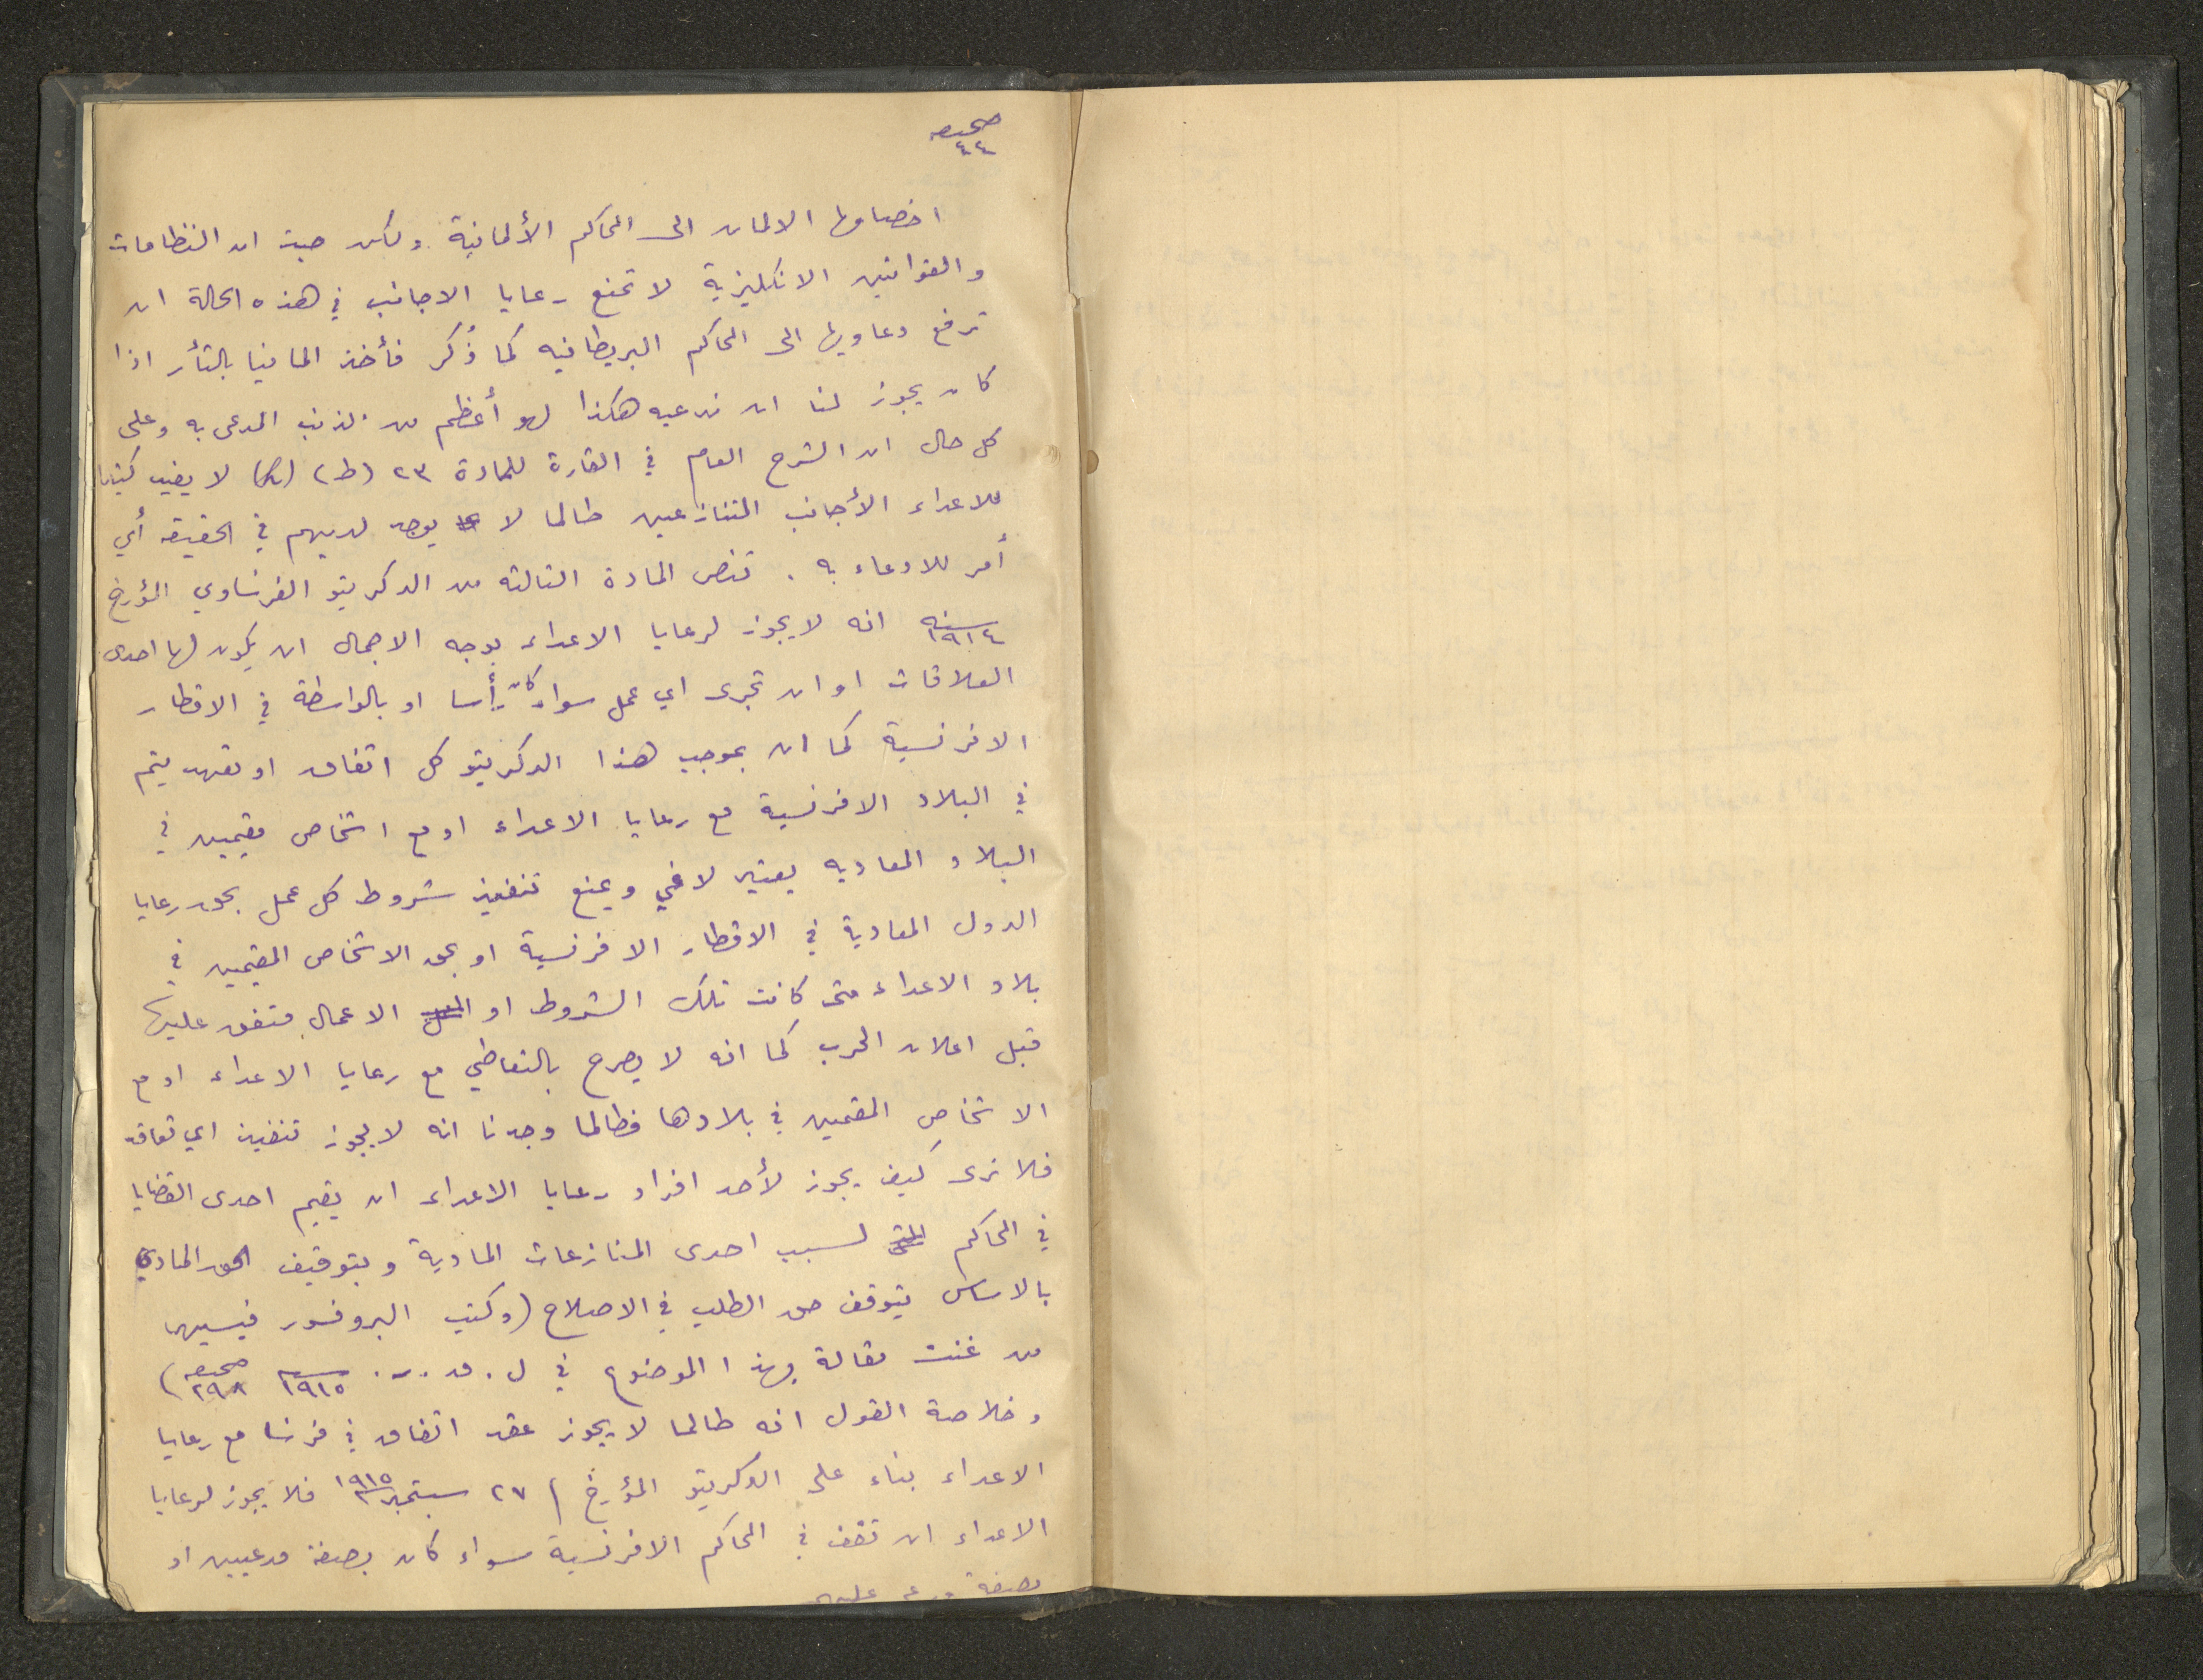 صحيفه
٤٤
اخصامها الالمان الى المحاكم الألمانية ولكن حيث ان النظامات
والقوانين الانكليزية لا تمنع رعايا الاجانب في هذه الحالة ان
ترفع دعاويها الى المحاكم البريطانيه كما ذُكر فأخذ المانيا بالثأر اذا
كان يجوز لنا ان ندعيه هكذا لهو أعظم من الذنب المدعى به وعلى
كل حال ان الشرح العام في القارة للمادة ٢٣ (ط) لا يفيد كثيرا
للاعداء الأجانب المتنازعين طالما لا يوجد لديهم في الحقيقه أي
أمر للادعاء به . تنص المادة الثالثه من الدكريتو الفرنساوي المؤرخ
سنه ١٩١٤ انه لا يجوز لرعايا الاعداء بوجه الاجمال ان يكون لها احدى
العلاقات او ان تجرى اي عمل سواء كان رأسا او بالواسطة في الاقطار
الافرنسية كما ان بموجب هذا الدكريتو كل اتفاق او تعهد يتم
في البلاد الافرنسية مع رعايا الاعداء او مع اشخاص مقيمين في
البلاد المعاديه يعتبر لاغي ويمنع تنفيذ شروط كل عمل بحق رعايا
الدول المعادية في الاقطار الافرنسية او بحق الاشخاص المقيمين في
بلاد الاعداء متى كانت تلك الشروط او الاعمال متفق عليها
قبل اعلان الحرب كما انه لا يصرح بالتعاطي مع رعايا الاعداء او مع
الاشخاص المقمين في بلادها فطالما وجدنا انه لا يجوز تنفيذ اي تعاقد
فلا نرى كيف يجوز لأحد افراد رعايا الاعداء ان يقيم احدى القضايا
في المحاكم لسبب احدى المنازعات المادية وبتوقيف الحق المادي
بالاساس يتوقف حق الطلب في الاصلاح (وكتب البروفسور فيسيها
من غنت مقالة بهذا الموضوع في ل . ق . ر . سنه ١٩١٥ صحيفه ٢٩٨)
وخلاصة القول انه طالما لا يجوز عقد اتفاق في فرنسا مع رعايا
الاعداء بناء على الدكريتو المؤرخ ٢٧ سبتمبر ١٩١٥ فلا يجوز لرعايا
الاعداء ان تقف في المحاكم الافرنسية سواء كان بصفة مدعيين او
بصفة مدعى عليهم